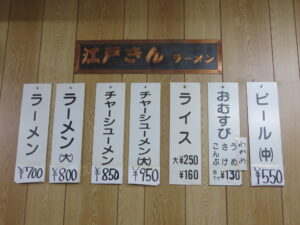 江戸きん ラーメン
ラーメン
¥700
ラーメン(大)
¥800
チャーシューメン
¥850
チャーシューメン(大)
¥950
ライス
大¥250
¥160
おむすび
わかめ
うめ
さけ
こんぶ
¥130
ビール(中)
¥550